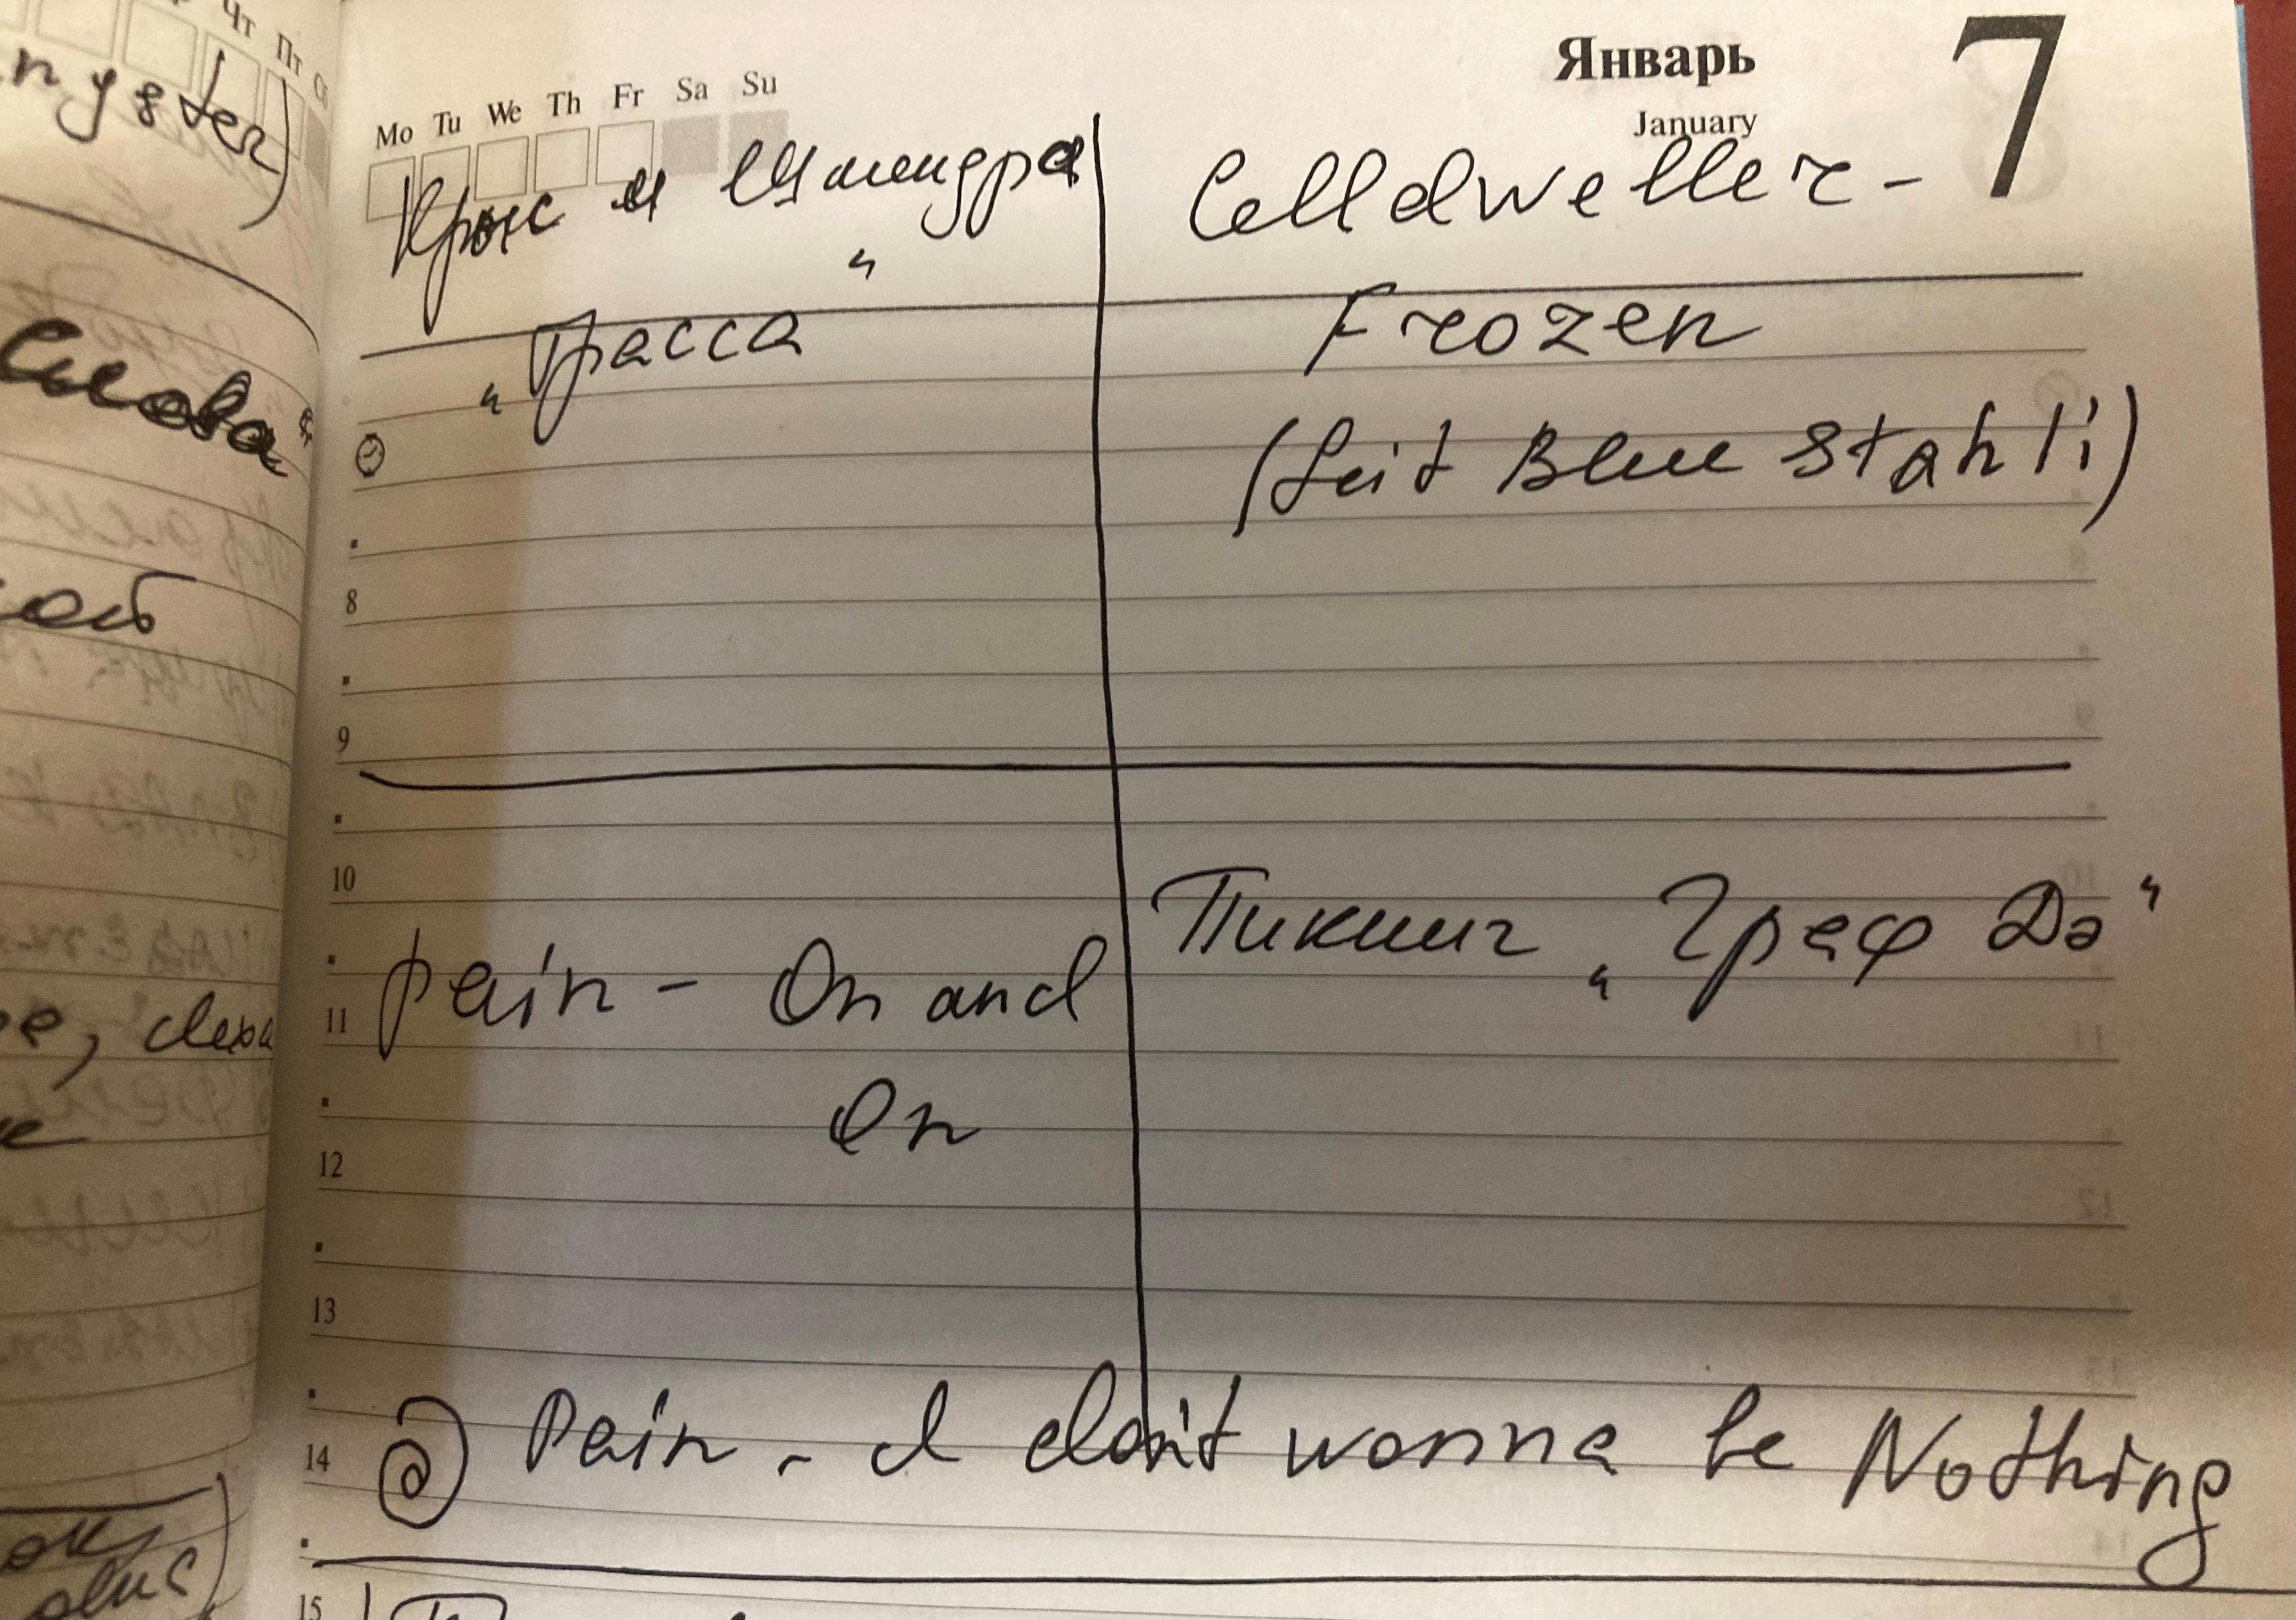 Чт Пт Сб
ngster)
Слова"
кой
Январь
January
7
Mo Tu We Th Fr Sa Su
Крыс и Шмендра
"Трасса"
Celldweller -
Frozen
(feit Blue Stahli)
8
9
10
11
12
13
14
15
Pain - On and
On
Пикник „Граф Дэ"
Pain - I don't wanna be Nothing